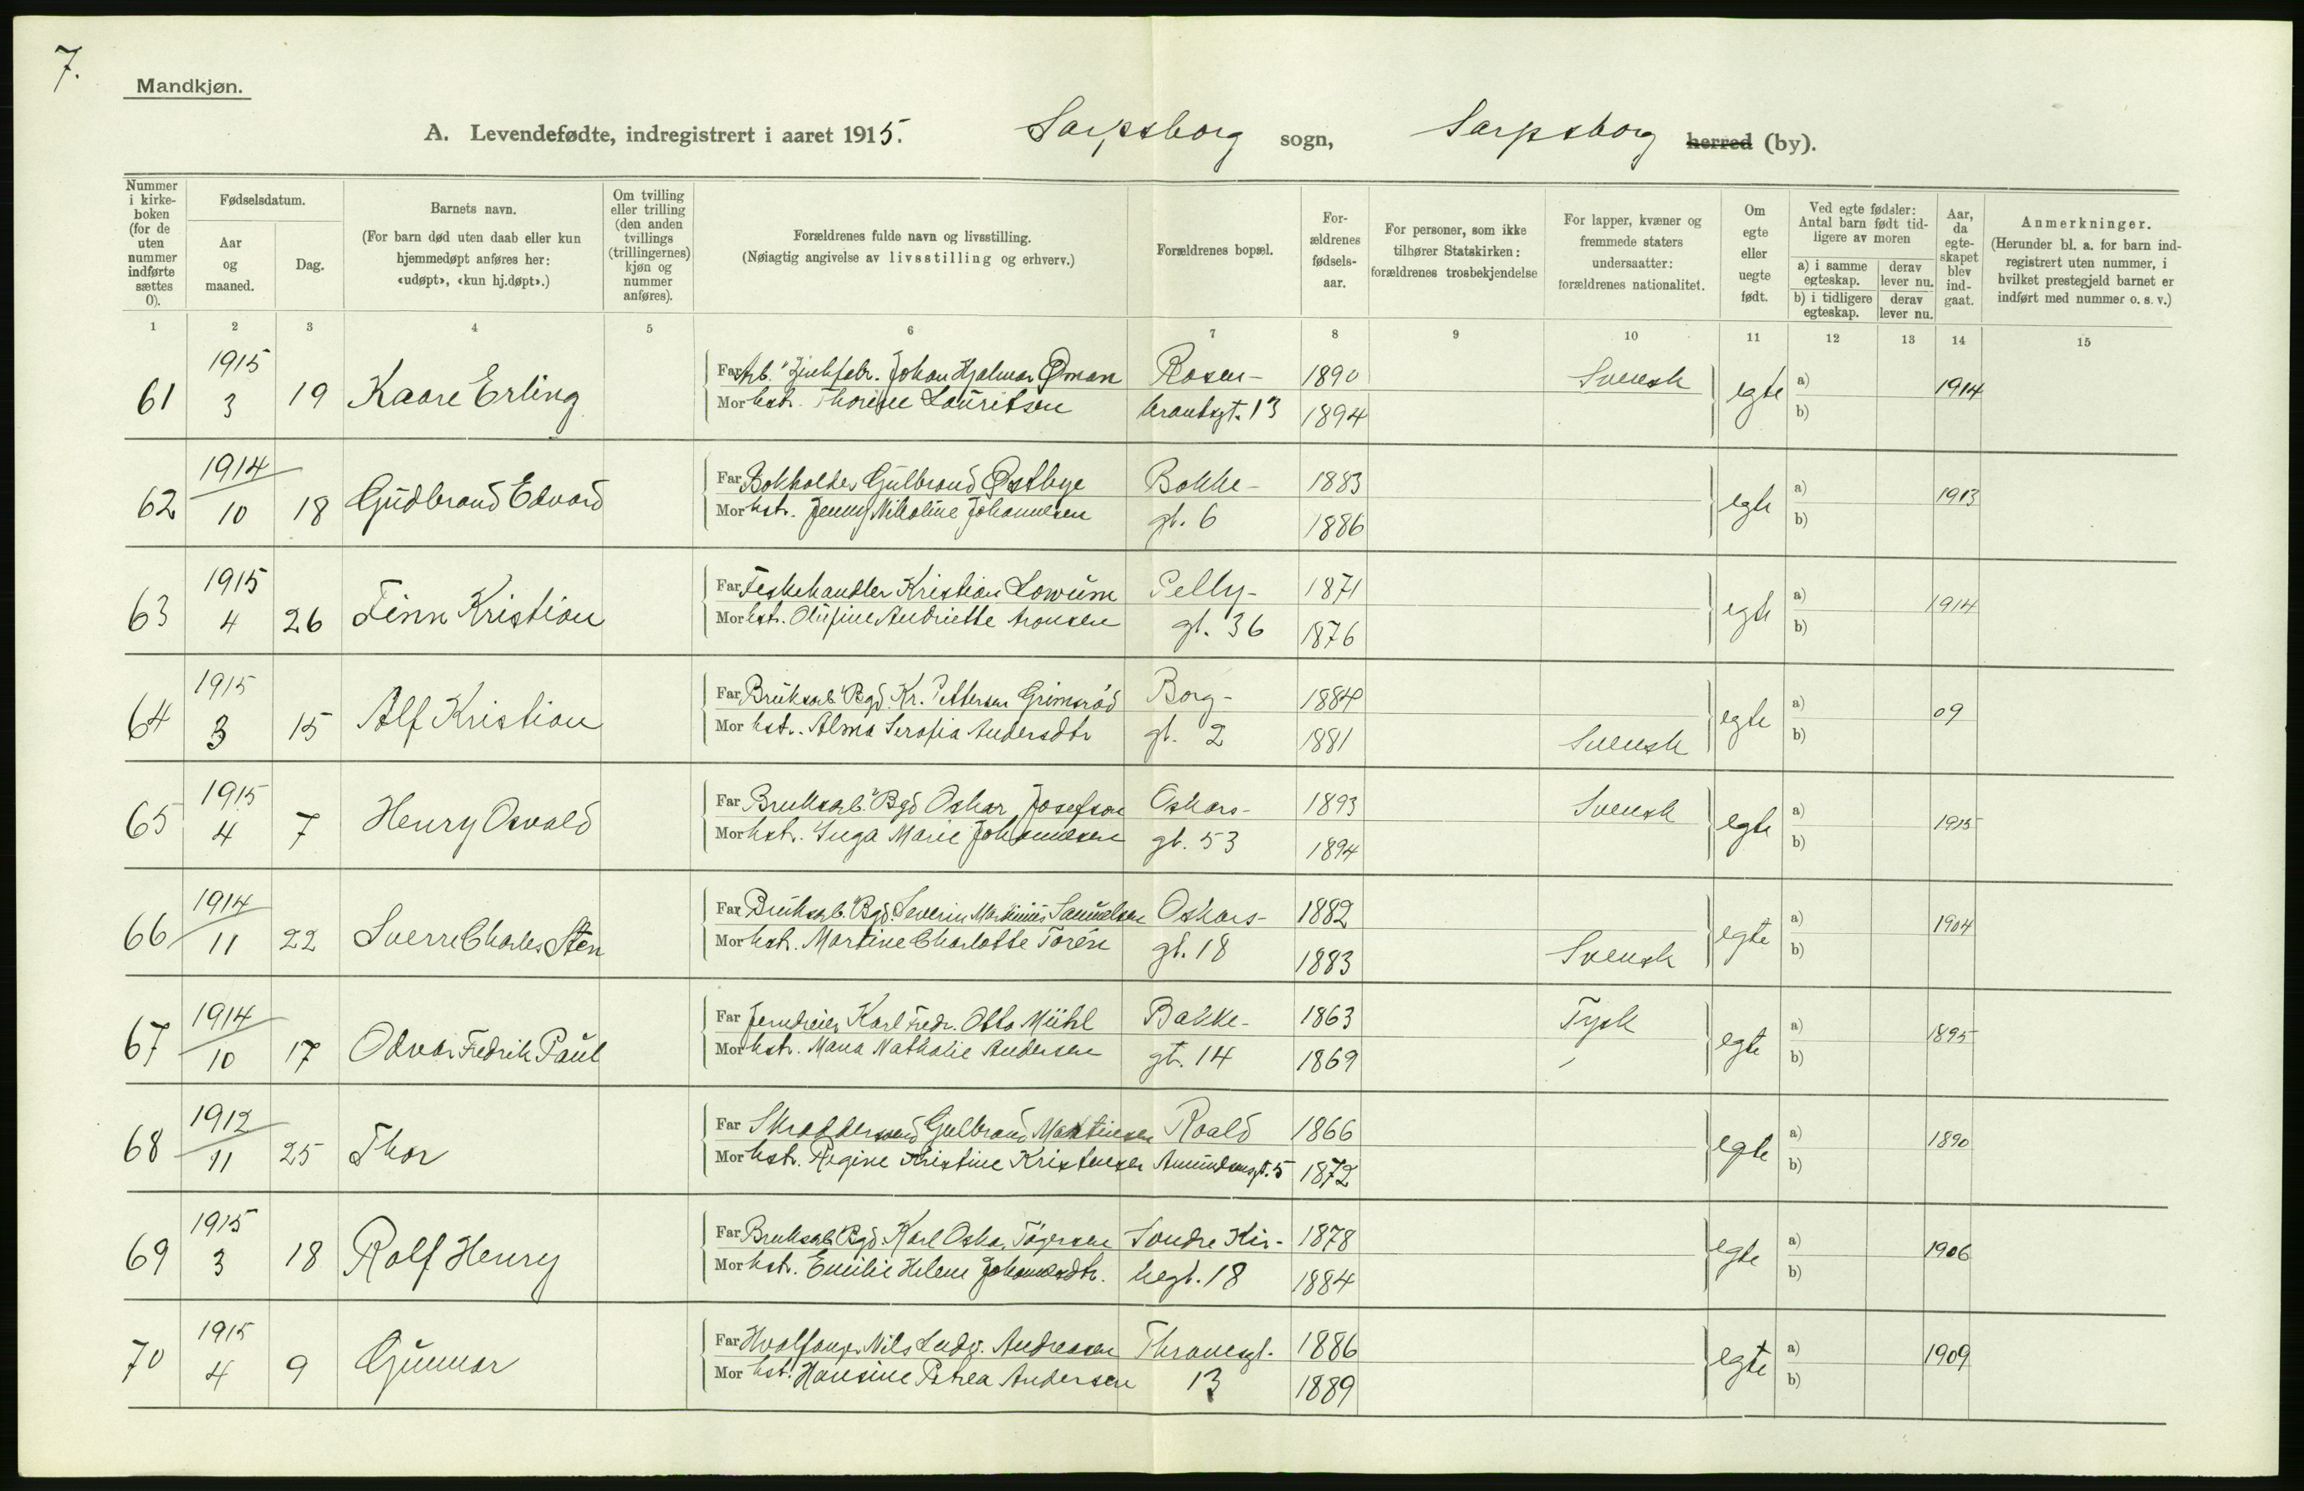 7.
Mandkjøn.
A. Levendefødte, indregistrert i aaret 1915. Sarpsborg sogn, Sarpsborg herred (by).
Nummer i kirkeboken (for de uten nummer indførte sættes 0).
Fødselsdatum.
Aar og maaned.
Dag.
Barnets navn.
(For barn død uten daab eller kun hjemmedøpt anføres her: «udøpt», «kun hj.døpt».)
Om tvilling eller trilling (den anden tvillings (trillingernes) kjøn og nummer anføres).
Forældrenes fulde navn og livsstilling.
(Nøiagtig angivelse av livsstilling og erhverv.)
Forældrenes bopæl.
Forældrenes fødselsaar.
For personer, som ikke tilhører Statskirken: forældrenes trosbekjendelse
For lapper, kvæner og fremmede staters undersaatter: forældrenes nationalitet.
Om egte eller uegte født.
Ved egte fødsler: Antal barn født tidligere av moren
a) i samme egteskap.
derav lever nu.
b) i tidligere egteskap.
derav lever nu.
Aar, da egteskapet blev indgaat.
Anmerkninger.
(Herunder bl. a. for barn indregistrert uten nummer, i hvilket prestegjeld barnet er indført med nummer o. s. v.)
1 2 3 4 5 6 7 8 9 10 11 12 13 14 15
61 1915 3 19 Kaare Erling
Far Arb. Johan Hjalmar Øman Rosen- 1890 Svensk egte a) 1914
Mor hstr. Thorine Lauritsen krantsgt. 13 1894 b)
62 1914 10 18 Gudbrand Edvard
Far Bokholder Gulbrand Østbye Bakke- 1883 egte a) 1913
Mor hstr. Jenny Nikoline Johannesen gt. 6 1886 b)
63 1915 4 26 Finn Kristian
Far Feskehandler Kristian Lowum Pelly- 1871 egte a) 1914
Mor hstr. Olufine Andriette Aronsen gt. 36 1876 b)
64 1915 3 15 Alf Kristian
Far Bruksarb. Bgd. Kr. Pettersen Grimsrød Borg- 1884 egte a) 09
Mor hstr. Alma Serafia Andersdtr gt. 2 1881 Svensk b)
65 1915 4 7 Henry Osvald
Far Bruksarb. Bgd Oskar Josefson Oskars- 1893 Svensk egte a) 1915
Mor hstr. Inga Marie Johannesen gt. 53 1894 b)
66 1914 11 22 Sverre Charles Sten
Far Bruksarb. Bgd. Severin Martinius Samuelsen Oskars- 1882 egte a) 1904
Mor hstr. Martine Charlotte Torén gt. 18 1883 Svensk b)
67 1914 10 17 Odvar Fredrik Paul
Far Jerndreier Karl Fredr. Otto Mühl Bakke- 1863 Tysk egte a) 1895
Mor hstr. Maria Nathalie Andersen gt. 14 1869 b)
68 1912 11 25 Thor
Far Skreddersvend Gulbrand Martinsen Roald 1866 egte a) 1890
Mor hstr. Regine Kristine Kristensen Amundsensgt. 5 1872 b)
69 1915 3 18 Rolf Henry
Far Bruksarb. Bgd. Karl Oska. Torgersen Sondre Kir- 1878 egte a) 1906
Mor hstr. Emilie Helene Johannesdtr. kegt. 18 1884 b)
70 1915 4 9 Gunnar
Far Hvalfanger Nils Ludv. Andreasen Thranesgt. 1886 egte a) 1909
Mor hst. Hansine Petrea Andersen 13 1889 b)